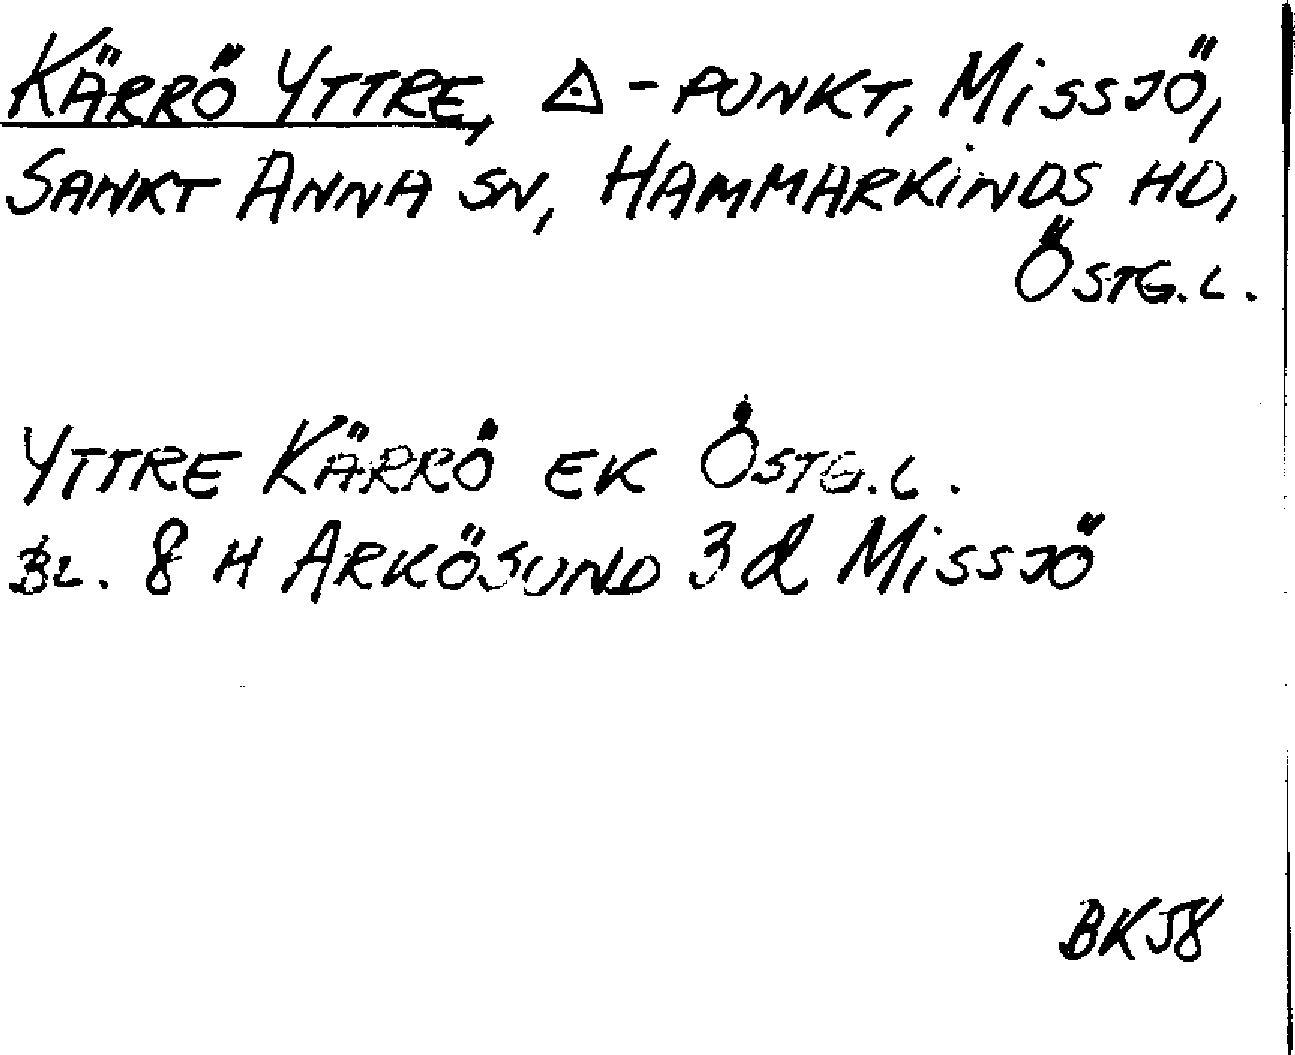 KÄRRÖ YTTRE, ◬-PUNKT, MISSJÖ,
SANKT ANNA SN, HAMMARKINDS HD,
ÖSTG.L.
YTTRE KÄRRÖ EK ÖSTG.L.
BL. 8 H ARKÖSUND 3d MISSJÖ
BK58